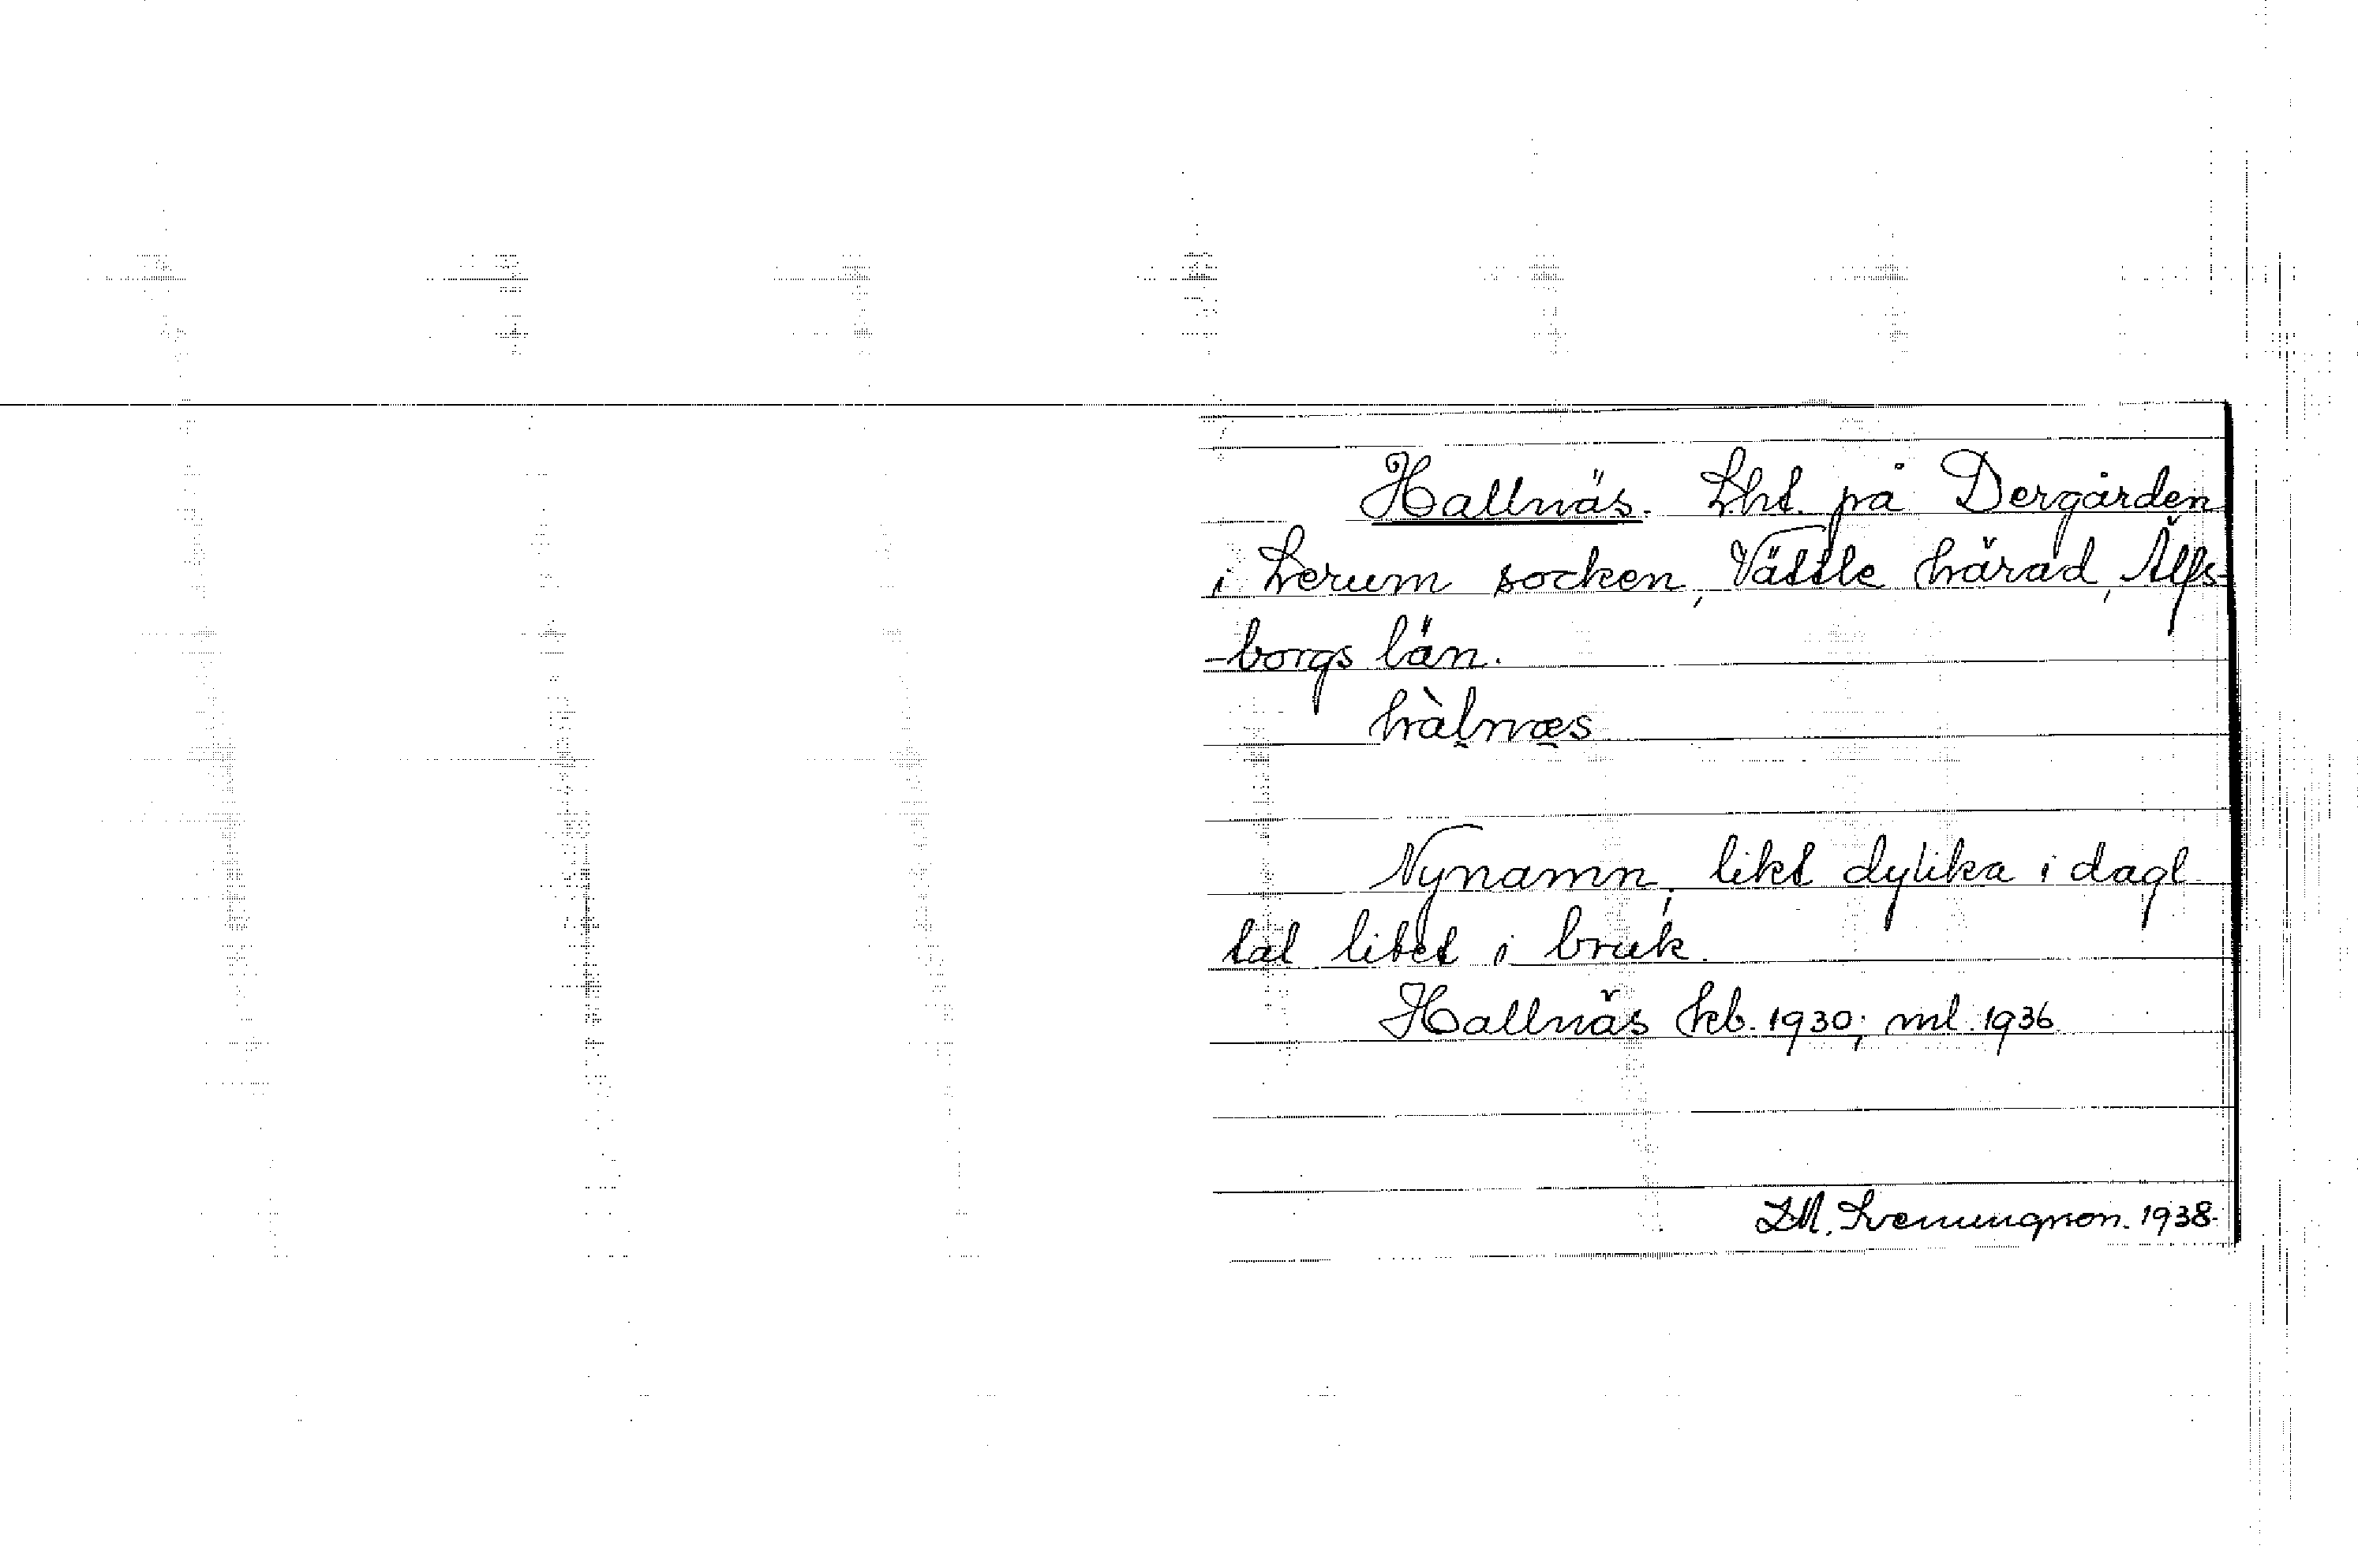 Hallnäs. Lht. på Dergården
i Lerum socken, Vättle härad, Älfs-
-borgs län.
hàlnæs
Nynamn, likt dylika i dagl.
tal litet i bruk.
Hallnäs kb. 1930; ml. 1936
1938.